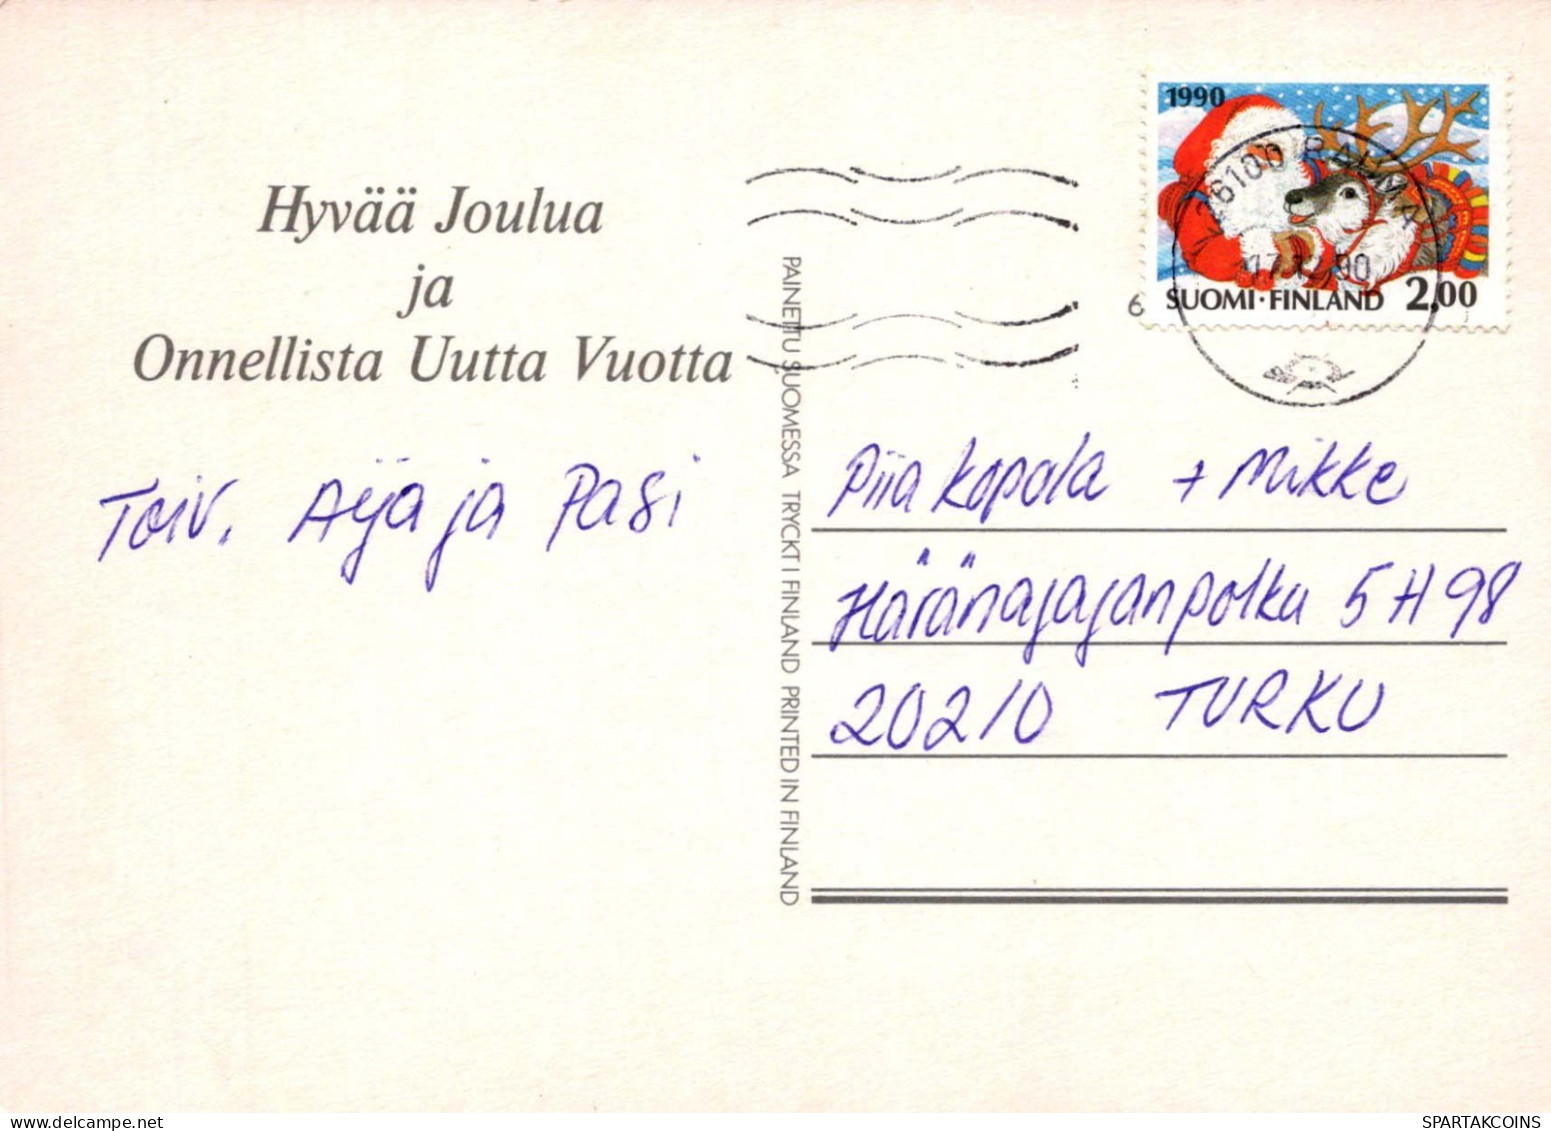 Hyvää Joulua
ja
Onnellista Uutta Vuotta
Toiv. Aija ja Pasi
PAINETTU SUOMESSA TRYCKT I FINLAND PRINTED IN FINLAND
1990
SUOMI·FINLAND 2,00
26100 RAUMA
17.12.90
6
Piia Kopola + Mikke
Häränajajanpolku 5 H 98
20210 TURKU
SPARTAKCOINS